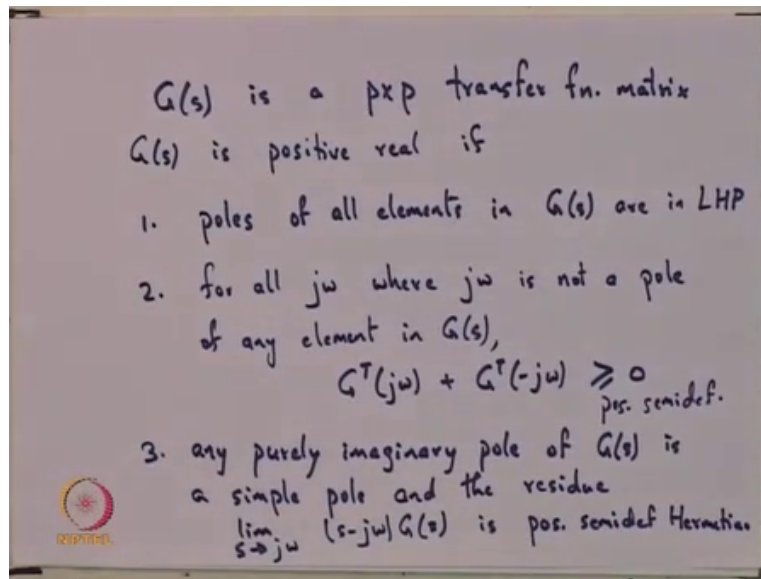 G(s) is a pxp transfer fn. matrix
G(s) is positive real if
1. poles of all elements in G(s) are in LHP
2. for all jω where jω is not a pole
of any element in G(s),
Gᵀ(jω) + Gᵀ(-jω) ⩾ 0
pos. semidef.
3. any purely imaginary pole of G(s) is
a simple pole and the residue
lim s→jω (s-jω) G(s) is pos. semidef Hermetian
NPTEL